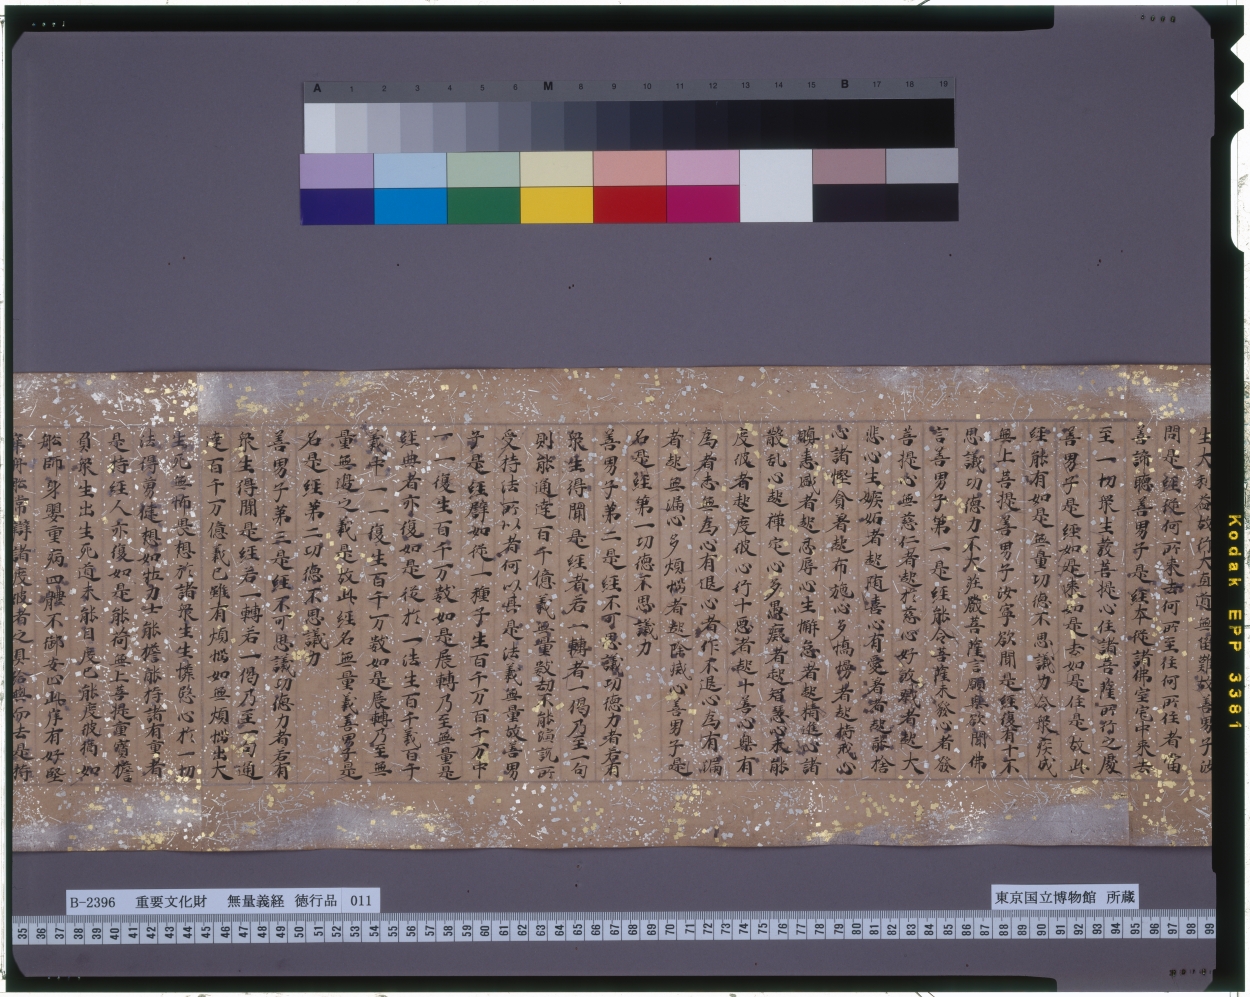 A 1 2 3 4 5 6 M 8 9 10 11 12 13 14 15 B 17 18 19
生大利益故行大直道無留難故善男子汝
問是經從何所來去何所至住何所住者當
善諦聽善男子是經本從諸佛室宅中來去
至一切衆生發菩提心住諸菩薩所行之處
善男子是經如是來如是去如是住是故此
經能有如是無量功德不思議力令衆疾成
無上菩提善男子汝寧欲聞是經復有十不
思議功德力不大莊嚴菩薩言願樂欲聞佛
言善男子第一是經能令菩薩未發心者發
菩提心無慈仁者起於慈心好殺戮者起大
悲心生嫉妬者起随喜心有愛著者起能捨
心諸慳貪者起布施心多憍慢者起持戒心
瞋恚盛者起忍辱心生懈怠者起精進心諸
散乱心起禅定心多愚癡者起智慧心未能
度彼者起度彼心行十惡者起十善心樂有
爲者志無爲心有退心者作不退心爲有漏
者起無漏心多煩惱者起除滅心善男子是
名是經第一功德不思議力
善男子第二是經不可思議功德力者若有
衆生得聞是經者若一轉者一偈乃至一句
則能通達百千億義無量數劫不能演說所
受持法所以者何以其是法義無量故善男
子是經譬如從一種子生百千万百千万中
一一復生百千万數如是展轉乃至無量是
經典者亦復如是從於一法生百千義百千
義中一一復生百千万數如是展轉乃至無
量無邊之義是故此經名無量義善男子是
名是經第二功德不思議力
善男子第三是經不可思議功德力者若有
衆生得聞是經若一轉若一偈乃至一句通
達百千万億義已雖有煩惱如無煩惱出大
生死無怖畏想於諸衆生生憐愍心於一切
法得勇健想如壮力士能擔能持諸有重者
是持經人亦復如是能荷無上菩提重寶擔
負衆生出生死道未能自度已能度彼猶如
船師身嬰重病四體不御安止此岸有好堅
牢舟船常辦諸度彼者之具給與而去是持
Kodak EPP 3381
B-2396 重要文化財 無量義経 徳行品 011
東京国立博物館 所蔵
35 36 37 38 39 40 41 42 43 44 45 46 47 48 49 50 51 52 53 54 55 56 57 58 59 60 61 62 63 64 65 66 67 68 69 70 71 72 73 74 75 76 77 78 79 80 81 82 83 84 85 86 87 88 89 90 91 92 93 94 95 96 97 98 99